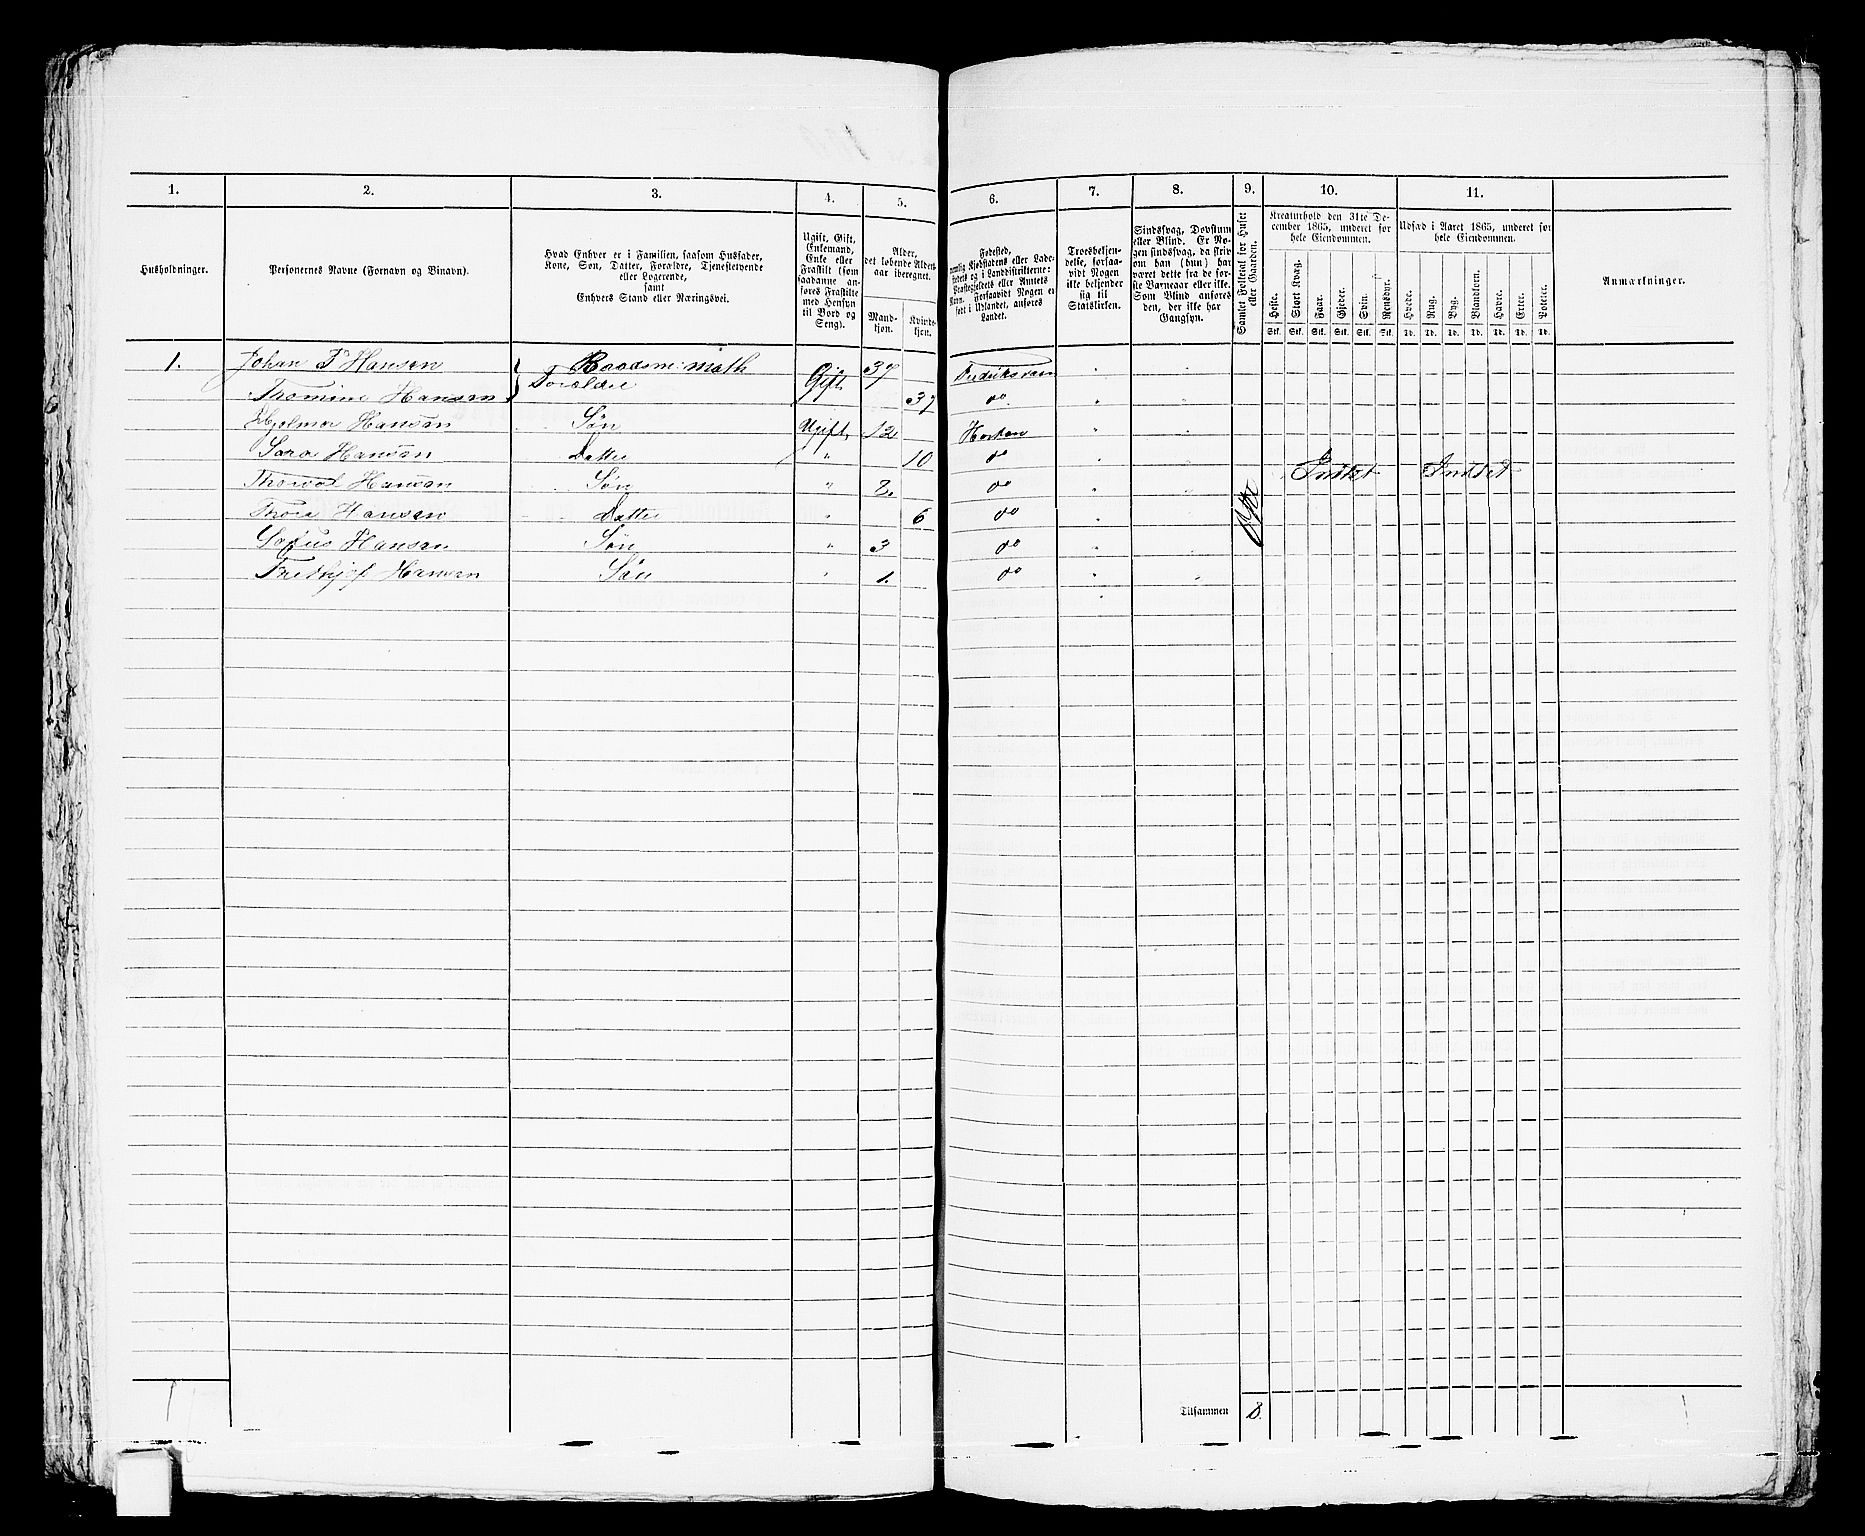 1. 2. 3. 4. 5. 6. 7. 8. 9. 10. 11.
Husholdninger.
Personernes Navne (Fornavn og Binavn).
Hvad Enhver er i Familien, saasom Husfader,
Kone, Søn, Datter, Forældre, Tjenestetyende
eller Logerende,
samt
Enhvers Stand eller Næringsvei.
Ugift, Gift,
Enkemand,
Enke eller
Fraskilt (som
saadanne an-
føres Fraskilte
med Hensyn
til Bord og
Seng).
Alder,
det løbende Alders-
aar iberegnet.
Mand-
kjøn.
Kvinde-
kjøn.
Fødested,
nemlig Kjøbstadens eller Lade-
stedets og i Landdistrikterne:
Præstegjældets eller Amtets
Navn. Forsaavidt Nogen er
født i Udlandet, anføres
Landet.
Troesbekjen-
delse, forsaa-
vidt Nogen
ikke bekjender
sig til
Statskirken.
Sindssvag, Døvstum
eller Blind. Er No-
gen sindssvag, da skriv
om han (hun) har
været dette fra de for-
ste Barneaar eller ikke.
Som Blind anføres
den, der ikke har
Gangsyn.
Samlet Folketal for Huset
eller Gaarden.
Kreaturhold den 31te De-
cember 1865, underet for
hele Eiendommen.
Heste. Stort Kvæg. Faar. Gjeder. Svin. Rensdyr.
Stk. Stk. Stk. Stk. Stk. Stk.
Udsæd i Aaret 1865, underet for
hele Eiendommen.
Hvede. Rug. Byg. Blandkorn. Havre. Erter. Poteter.
Td. Td. Td. Td. Td. Td. Td.
Anmærkninger.
1. Johan F Hansen Baadsm: math Gift 37 Fredriksværn " "
Thomine Hansen Forældre 37 do " "
Hjelmar Hansen Søn Ugift 12 Horten " "
Sara Hansen Datter " 10 do " "
Thorval Hansen Søn " 8. do " " Intet Intet
Thora Hansen Datter " 6 do " "
Sofus Hansen Søn " 3 do " "
Fridthjof Hansen Søn " 1. do " "
Otte
Tilsammen 8.